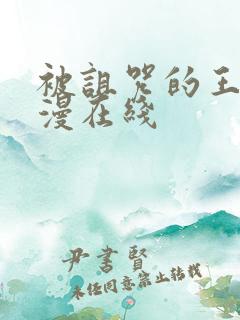 被诅咒的王
漫在线
尹书贤
未经同意禁止转载